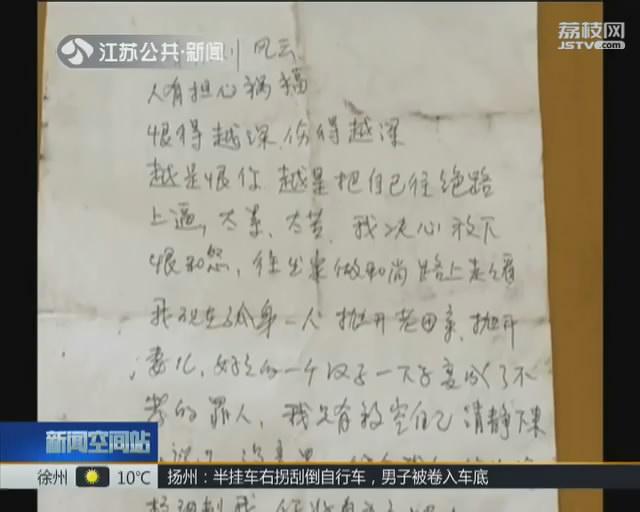 江苏公共·新闻
荔枝网
JSTV.com
风云
人有担心祸福
恨得越深,伤得越深
越是恨你 越是把自己往绝路
上逼,太累、太苦,我决心放下
恨和怨,往出家做和尚路上走
我现在孤身一人 抛开老母亲、抛开
妻儿,好好的一个汉子一下子变成了不
孝的罪人,我只有放空自己 清静下来
新闻空间站
徐州 10℃ 扬州:半挂车右拐刮倒自行车,男子被卷入车底